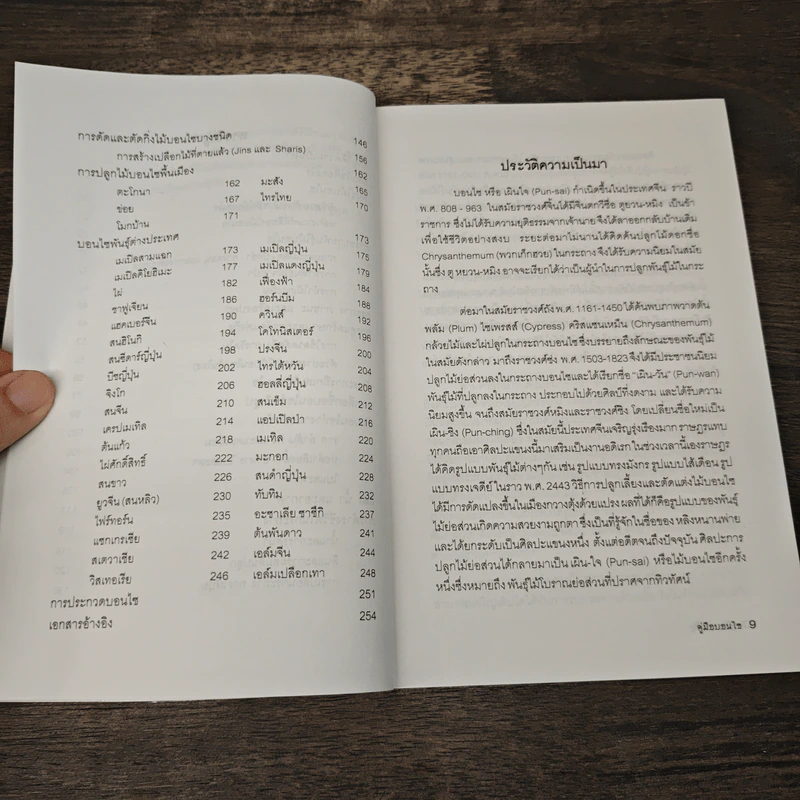 การตัดและดัดกิ่งไม้บอนไซบางชนิด 146
การสร้างเปลือกไม้ที่ตายแล้ว (Jins และ Sharis) 156
การปลูกไม้บอนไซพื้นเมือง 162
ตะโกนา 162 มะสัง 165
ข่อย 167 ไทรไทย 170
โมกบ้าน 171
บอนไซพันธุ์ต่างประเทศ 173
เมเปิลสามแฉก 173 เมเปิลญี่ปุ่น 175
เมเปิลคิโยฮิเมะ 177 เมเปิลแดงญี่ปุ่น 179
ไผ่ 182 เฟื่องฟ้า 184
ชาฟูเจียน 186 ฮอร์นบีม 188
แฮคเบอร์จีน 190 ควินส์ 192
สนฮิโนกิ 194 โคโทนิสเตอร์ 196
สนซีดาร์ญี่ปุ่น 198 ปรงจีน 200
บีชญี่ปุ่น 202 ไทรไต้หวัน 204
จิงโก 206 ฮอลลี่ญี่ปุ่น 208
สนจีน 210 สนเข็ม 212
เครปเมเทิล 214 แอปเปิลป่า 216
ต้นแก้ว 218 เมเทิล 220
ไผ่ศักดิ์สิทธิ์ 222 มะกอก 224
สนขาว 226 สนดำญี่ปุ่น 228
ยูวจีน (สนหลิว) 230 ทับทิม 232
ไฟร์ทอร์น 235 อะซาเลีย ซาซึกิ 237
แซกเกรเซีย 239 ต้นพันดาว 241
สเตวาเซีย 242 เอล์มจีน 244
วิสเทอเรีย 246 เอล์มเปลือกเทา 248
การประกวดบอนไซ 251
เอกสารอ้างอิง 254
ประวัติความเป็นมา
บอนไซ หรือ เผินใจ (Pun-sai) กำเนิดขึ้นในประเทศจีน ราวปี
พ.ศ. 808 - 963 ในสมัยราชวงศ์จิ้นได้มีจินตกวีชื่อ ตูยวน-หมิง เป็นข้า
ราชการ ซึ่งไม่ได้รับความยุติธรรมจากเจ้านาย จึงได้ลาออกกลับบ้านเดิม
เพื่อใช้ชีวิตอย่างสงบ ระยะต่อมาไม่นานได้คิดค้นปลูกไม้ดอกชื่อ
Chrysanthemum (พวกเก็กฮวย) ในกระถาง จึงได้รับความนิยมในสมัย
นั้นซึ่ง ตู หยวน-หมิง อาจจะเรียกได้ว่าเป็นผู้นำในการปลูกพันธุ์ไม้ในกระ
ถาง
ต่อมาในสมัยราชวงศ์ถัง พ.ศ. 1161-1450 ได้ค้นพบภาพวาดต้น
พลัม (Plum) ไซเพรสส์ (Cypress) คริสแซนเหมีน (Chrysanthemum)
กล้วยไม้และไผ่ปลูกในกระถางบอนไซ ซึ่งบรรยายถึงลักษณะของพันธุ์ไม้
ในสมัยดังกล่าว มาถึงราชวงศ์ซ่ง พ.ศ. 1503-1823 จึงได้มีประชาชนนิยม
ปลูกไม้ย่อส่วนลงในกระถางบอนไซและได้เรียกชื่อ "เผิน-วัน" (Pun-wan)
พันธุ์ไม้ที่ปลูกลงในกระถาง ประกอบไปด้วยศิลปที่งดงาม และได้รับความ
นิยมสูงขึ้น จนถึงสมัยราชวงศ์หมิงและราชวงศ์ชิง โดยเปลี่ยนชื่อใหม่เป็น
เผิน-ชิง (Pun-ching) ซึ่งในสมัยนี้ประเทศจีนเจริญรุ่งเรืองมาก ราษฎรแทบ
ทุกคนถือเอาศิลปะแขนงนี้มาเสริมเป็นงานอดิเรก ในช่วงเวลานี้เองราษฎร
ได้คิดรูปแบบพันธุ์ไม้ต่างๆกัน เช่น รูปแบบทรงมังกร รูปแบบไส้เดือน รูป
แบบทรงเจดีย์ ในราว พ.ศ. 2443 วิธีการปลูกเลี้ยงและตัดแต่งไม้บอนไซ
ได้มีการดัดแปลงขึ้นในเมืองกวางตุ้งด้วยแปรง ผลที่ได้ก็คือรูปแบบของพันธุ์
ไม้ย่อส่วนเกิดความสวยงามถูกตา ซึ่งเป็นที่รู้จักในชื่อของ หลิงหนานพ่าย
และได้ยกระดับเป็นศิลปะแขนงหนึ่ง ตั้งแต่อดีตจนถึงปัจจุบัน ศิลปะการ
ปลูกไม้ย่อส่วนได้กลายมาเป็น เผิน-ใจ (Pun-sai) หรือไม้บอนไซอีกครั้ง
หนึ่งซึ่งหมายถึง พันธุ์ไม้โบราณย่อส่วนที่ปราศจากทิวทัศน์
คู่มือบอนไซ 9